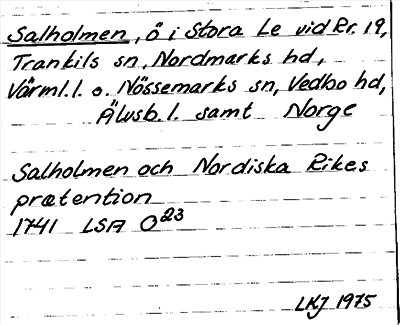 Salholmen, ö i Stora Le vid Rr. 19,
Trankils sn, Nordmarks hd,
Värml.l. o. Nössemarks sn, Vedbo hd,
Älvsb.l. samt Norge
Salholmen och Nordiska Rikes
prætention
1741 LSA O23
LKJ 1975